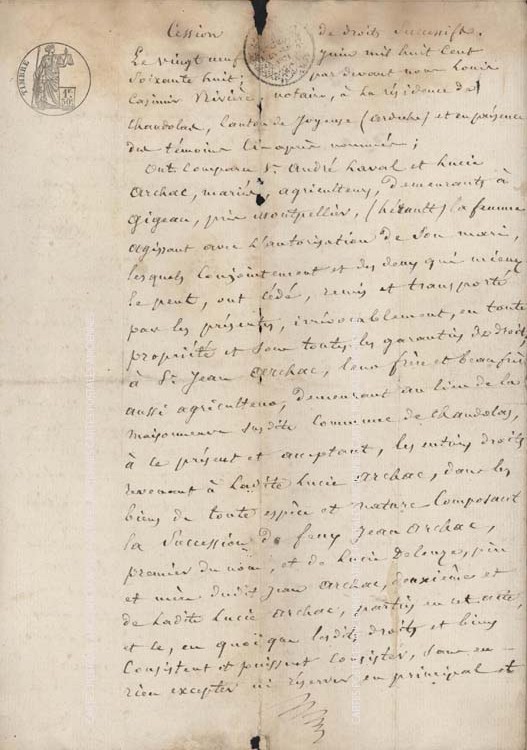 Cession de droits successifs.
Le vingt neuf juin mil huit cent
soixante huit; par devant nous Louis
Casimir Rivière, notaire, à la résidence de
Chandolas, canton de Joyeuse (ardèche) et en présence
des témoins ci-après nommés;
Ont comparu Sr. André Laval et Lucie
Archac, mariés, agriculteurs, demeurants à
Gigean, près Montpellier, (hérault) la femme
agissant avec l'autorisation de son mari,
lesquels conjointement et des deux qui mieux
le peut, ont cédé, remis et transporté
par les présentes, irrévocablement, en toute
propriété et sous toutes les garanties de droit,
à Sr. Jean Archac, leur frère et beau frère
aussi agriculteur, demeurant au lieu de la
Maisonneuve susdite commune de Chandolas,
à ce présent et acceptant, les entiers droits
revenant à Ladite Lucie Archac, dans les
biens de toute espèce et nature composant
la succession de feux Jean Archac,
premier du nom, et de Lucie Deleuze, père
et mère dudit Jean Archac, deuxième et
de Ladite Lucie Archac, parties en cet acte
et ce, en quoi que lesdits droits et biens
Consistent et puissent consister, sans en
rien excepter ni réserver en principal et
TIMBRE